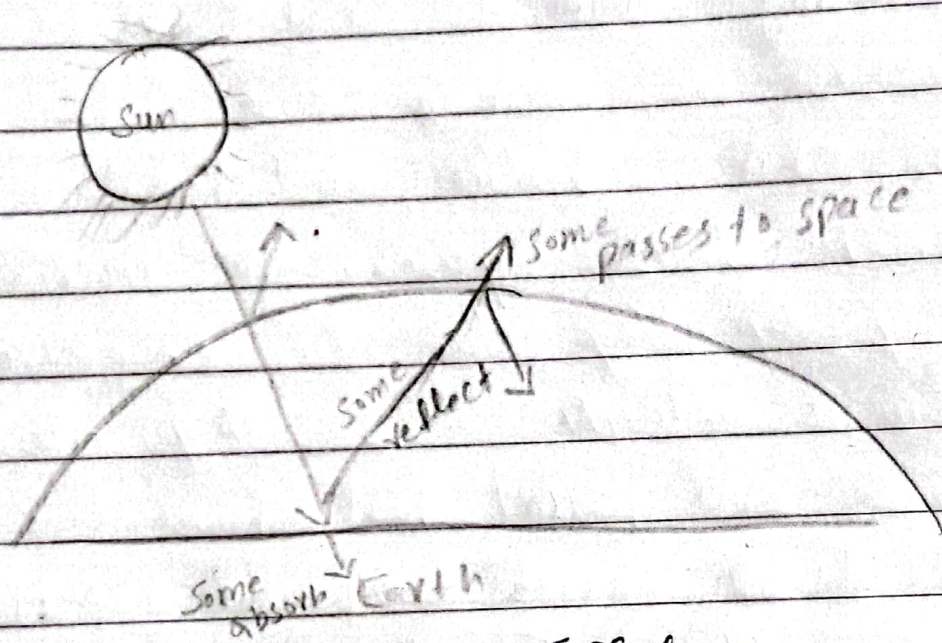 Sun
Some passes to space
Some
reflect
Some
absorb Earth